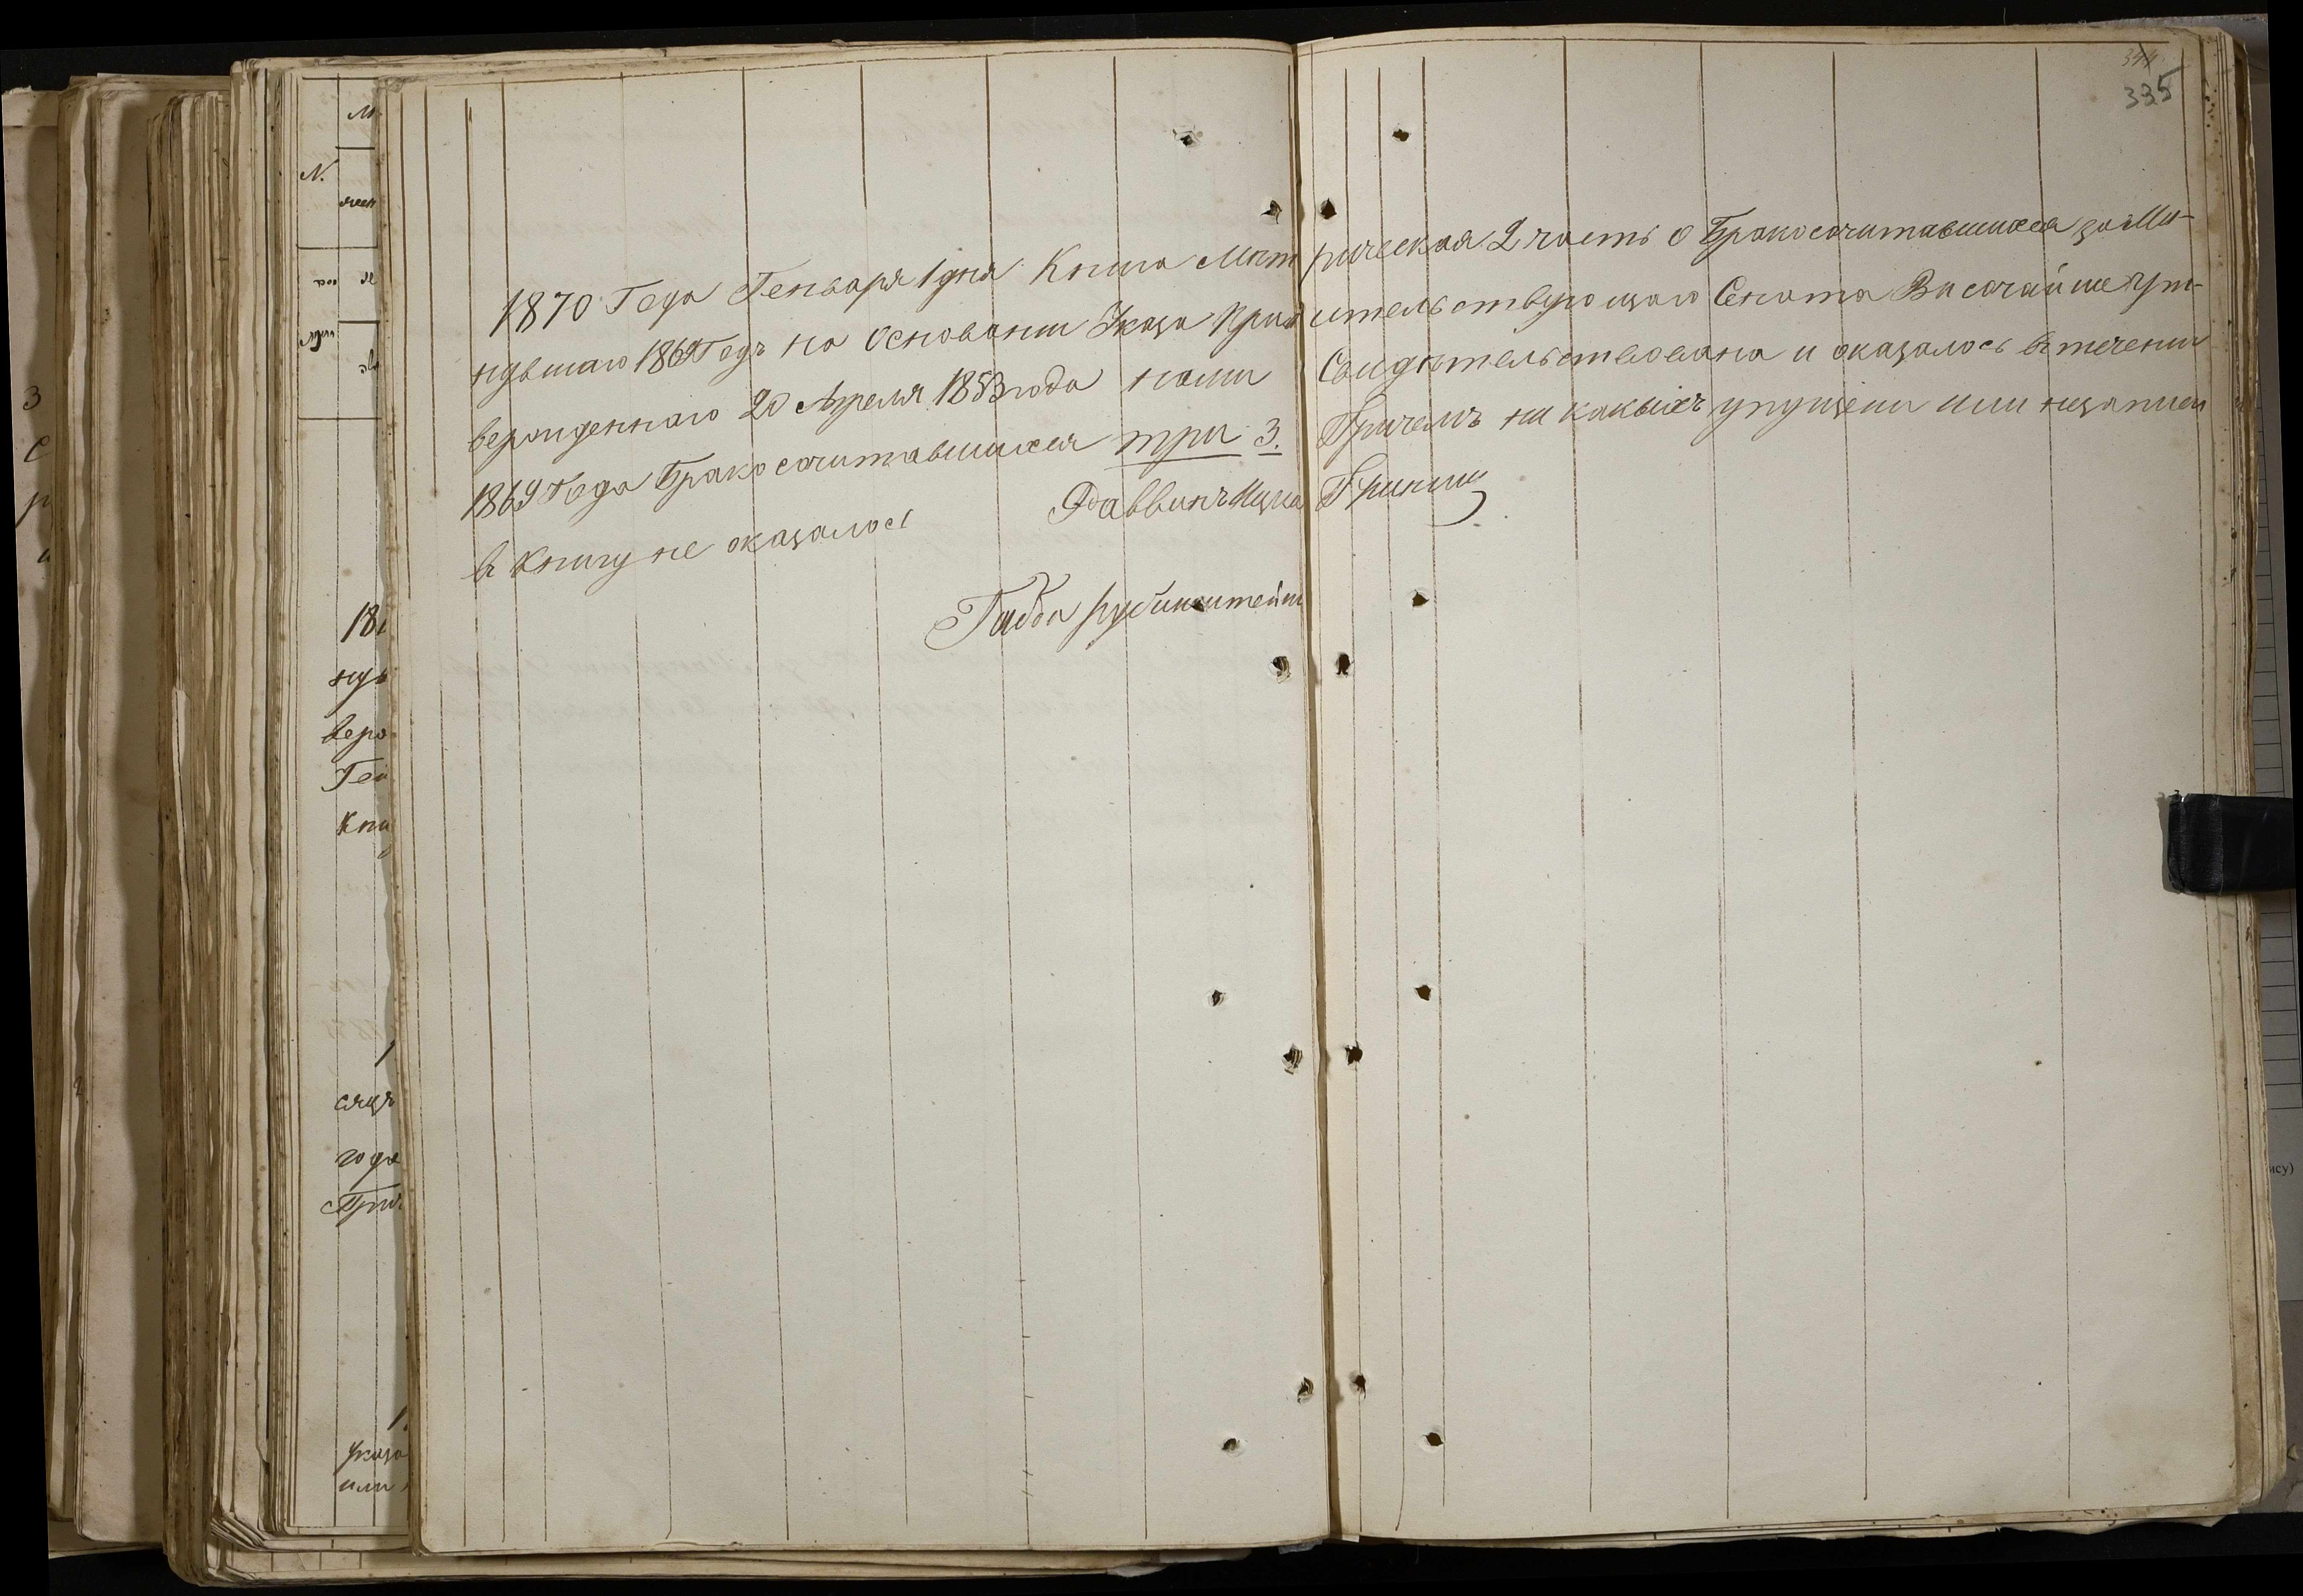 344
335
1870 Года Генваря 1 дня Книга Метрическая 2 часть о Бракосочитавшихся за Ми-
нувшаго 1869 Годъ на Основании Указа Правительствующаго Сената Высочайше Ут-
вержденнаго 20 Апреля 1853 года нами Свидетельствована и оказалось втечении
1869 Года Бракосочитавшихся три 3. Причемъ ни какыхъ упущени или незаписи
в Книгу не оказалось
Раввинъ Ицка Гринш
Габои Рубинштейн
N.
18
нув
верж
Ген
Кни
сяца
года
При
Указа
или